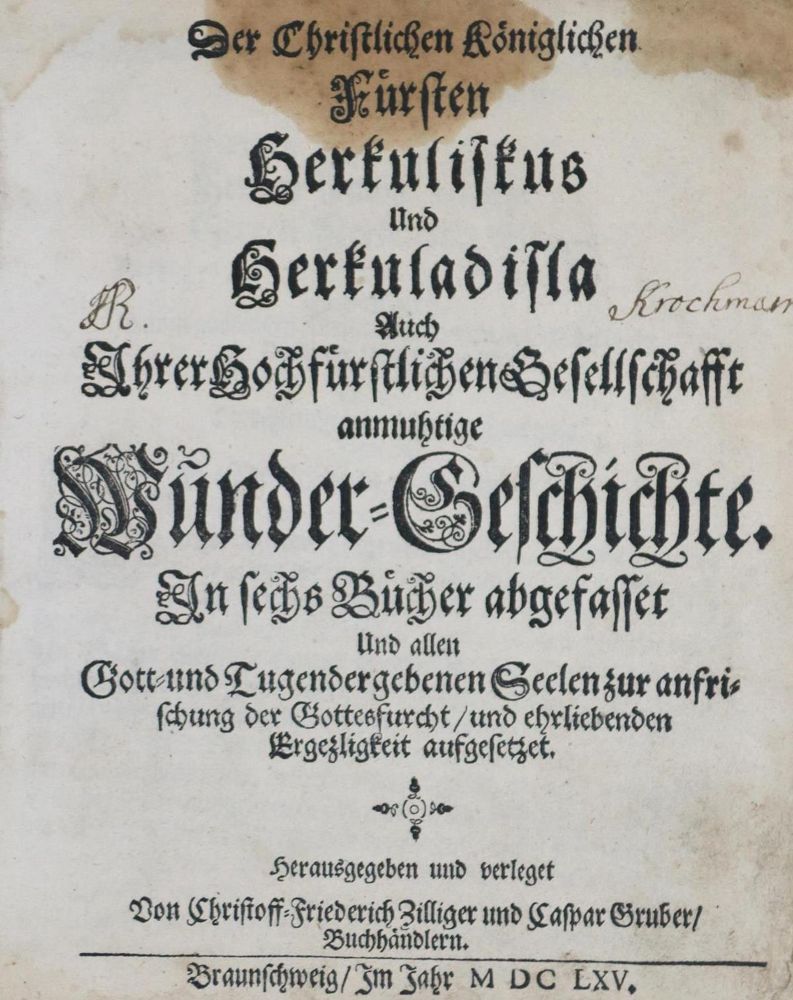 Der Christlichen Königlichen
Fürsten
Herkuliskus
Und
Herkuladisla
R.
Krochman
Auch
Ihrer Hochfürstlichen Gesellschafft
anmuhtige
Wunder-Geschichte.
In sechs Bücher abgefasset
Und allen
Gott-und Tugendergebenen Seelen zur anfri-
schung der Gottesfurcht/und ehrliebenden
Ergezligkeit aufgesetzet.
Herausgegeben und verleget
Von Christoff-Friederich Zilliger und Caspar Gruber/
Buchhändlern.
Braunschweig/Im Jahr M DC LXV.